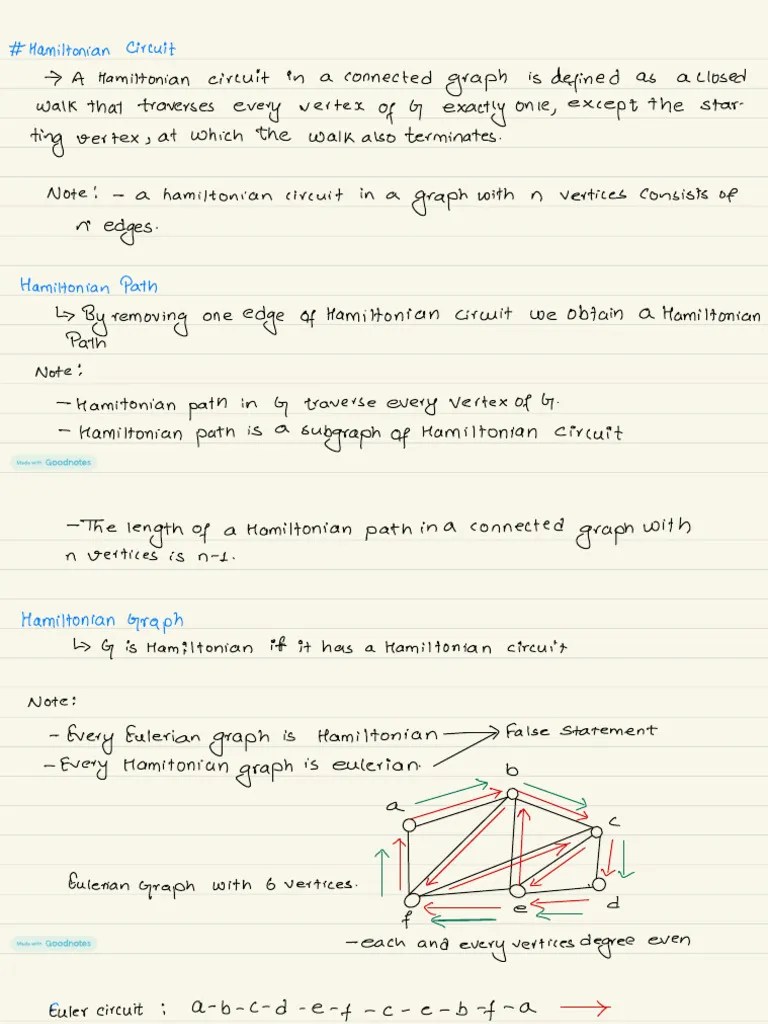 # Hamiltonian Circuit
→ A Hamiltonian circuit in a connected graph is defined as a closed
walk that traverses every vertex of G exactly onle, except the star-
ting vertex, at which the walk also terminates.
Note: - a hamiltonian circuit in a graph with n vertices consists of
n edges.
Hamiltonian Path
↳ By removing one edge of Hamiltonian circuit we obtain a Hamiltonian
Path
Note:
- Hamitonian path in G traverse every vertex of G.
- Hamiltonian path is a subgraph of Hamiltonian circuit
Made with Goodnotes
- The length of a Hamiltonian path in a connected graph with
n vertices is n-1.
Hamiltonian Graph
↳ G is Hamiltonian if it has a Hamiltonian circuit
Note:
- Every Eulerian graph is Hamiltonian → False statement
- Every Hamitonian graph is eulerian.
b
a
c
Eulerian Graph with 6 vertices.
f
e
d
- each and every vertices degree even
Made with Goodnotes
Euler circuit : a-b-c-d-e-f-c-e-b-f-a →